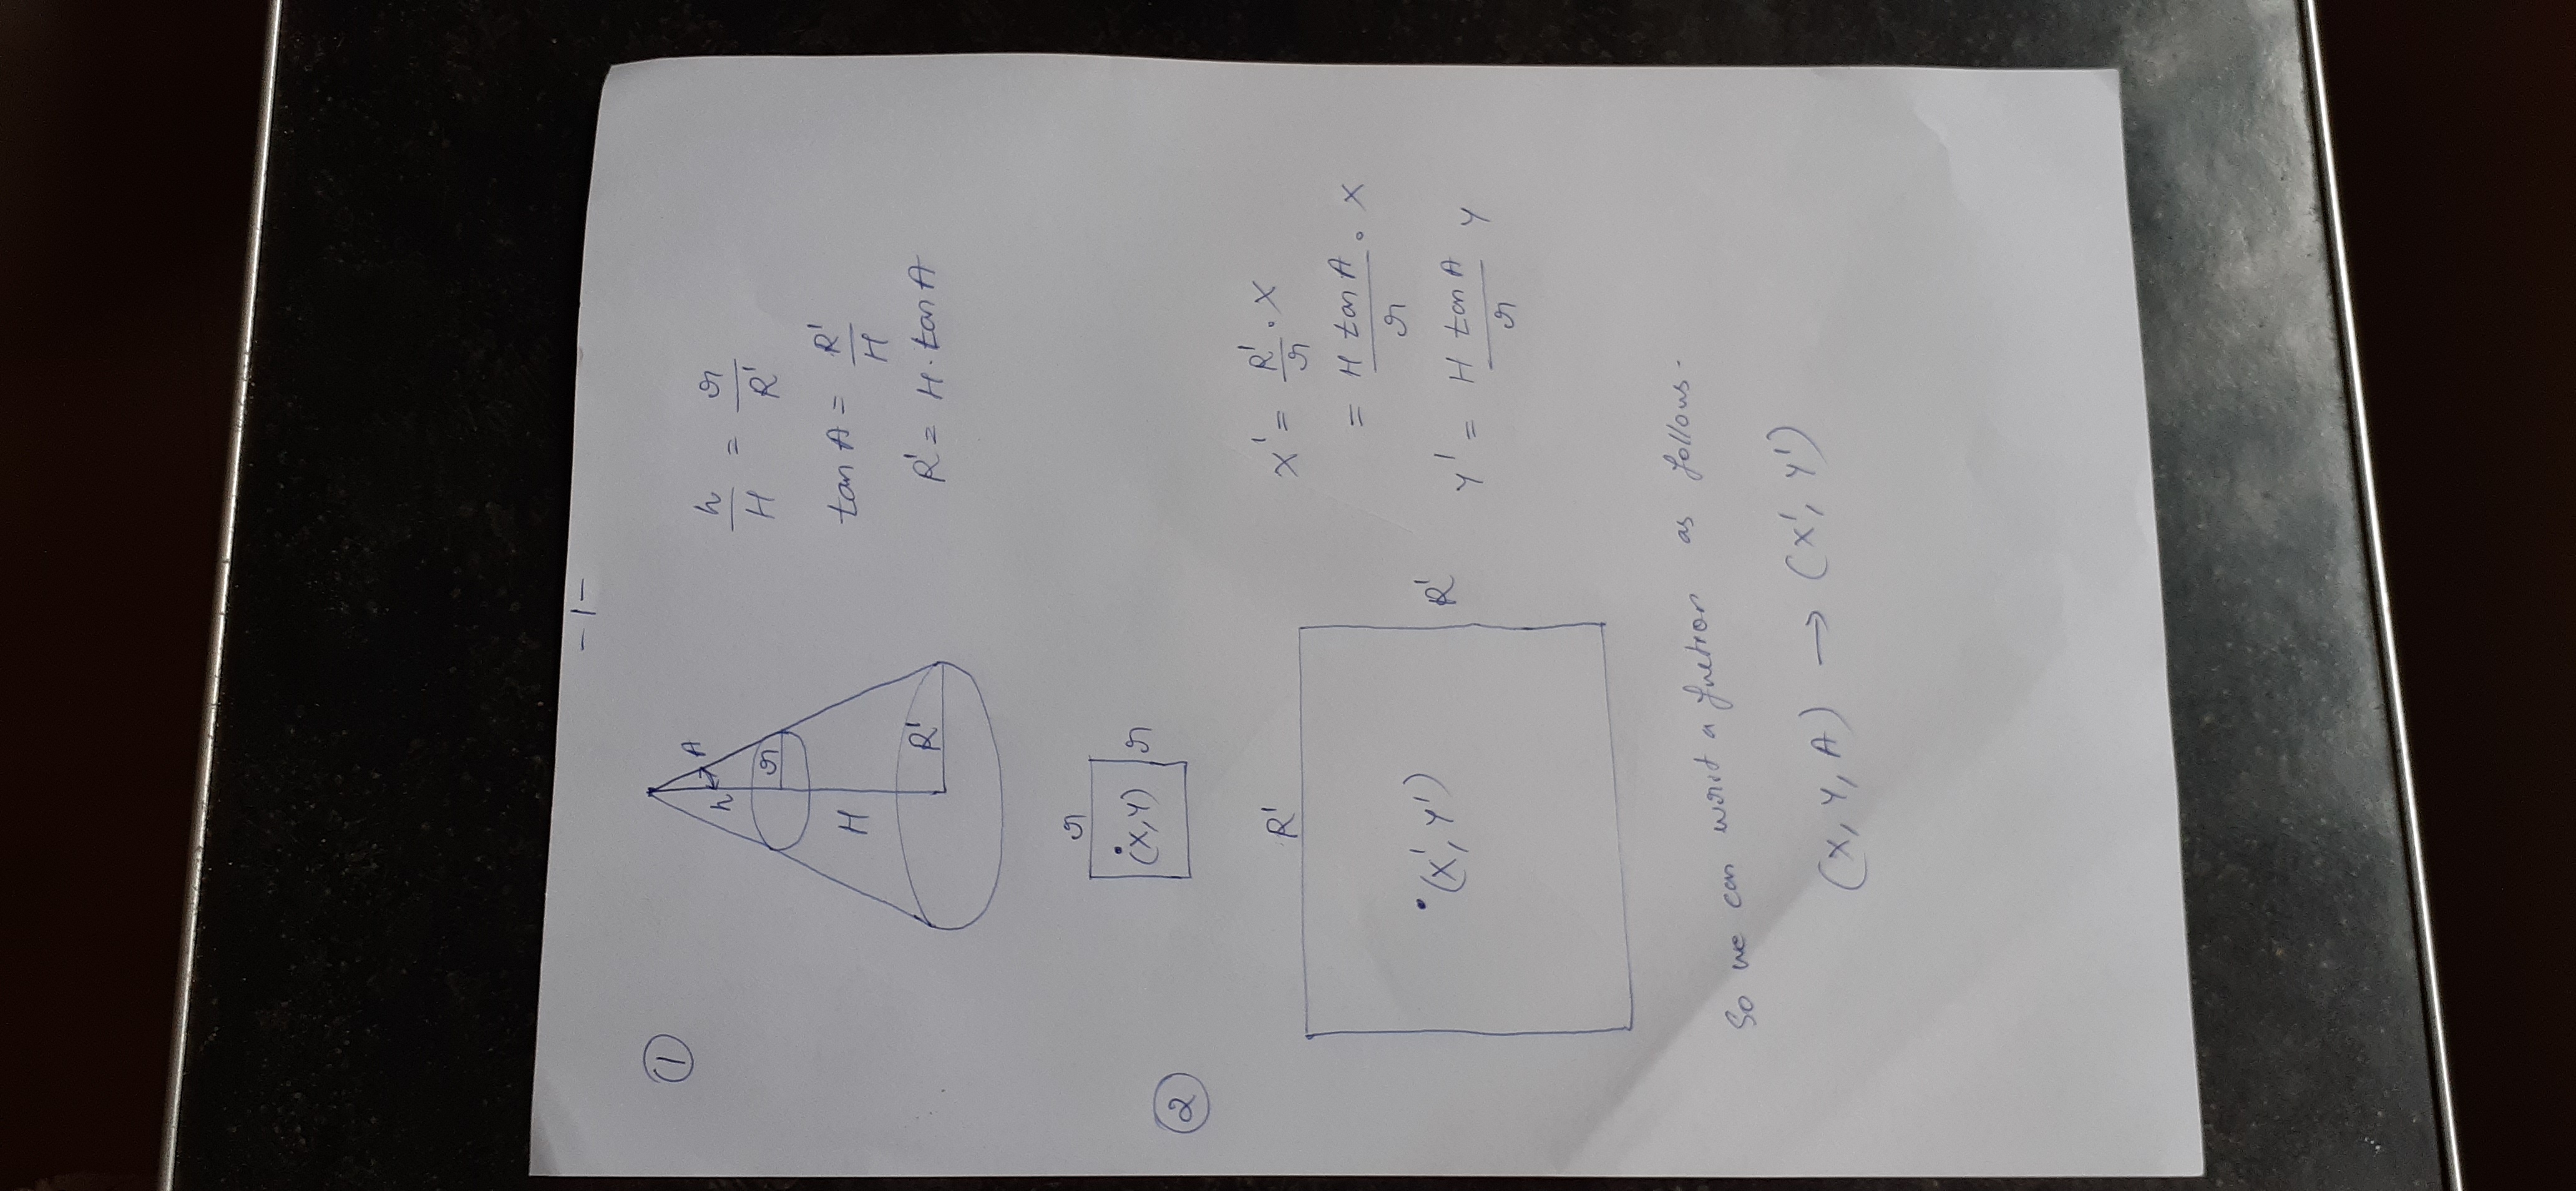 -1-
①
A
h
r
H
R'
h/H = r/R'
tan A = R'/H
R' = H . tan A
②
r
(x, y)
r
R'
(x', y')
R'
x' = R'/r . x
= H tan A/r . x
y' = H tan A/r y
So we can writ a function as follows.
(x, y, A) → (x', y')